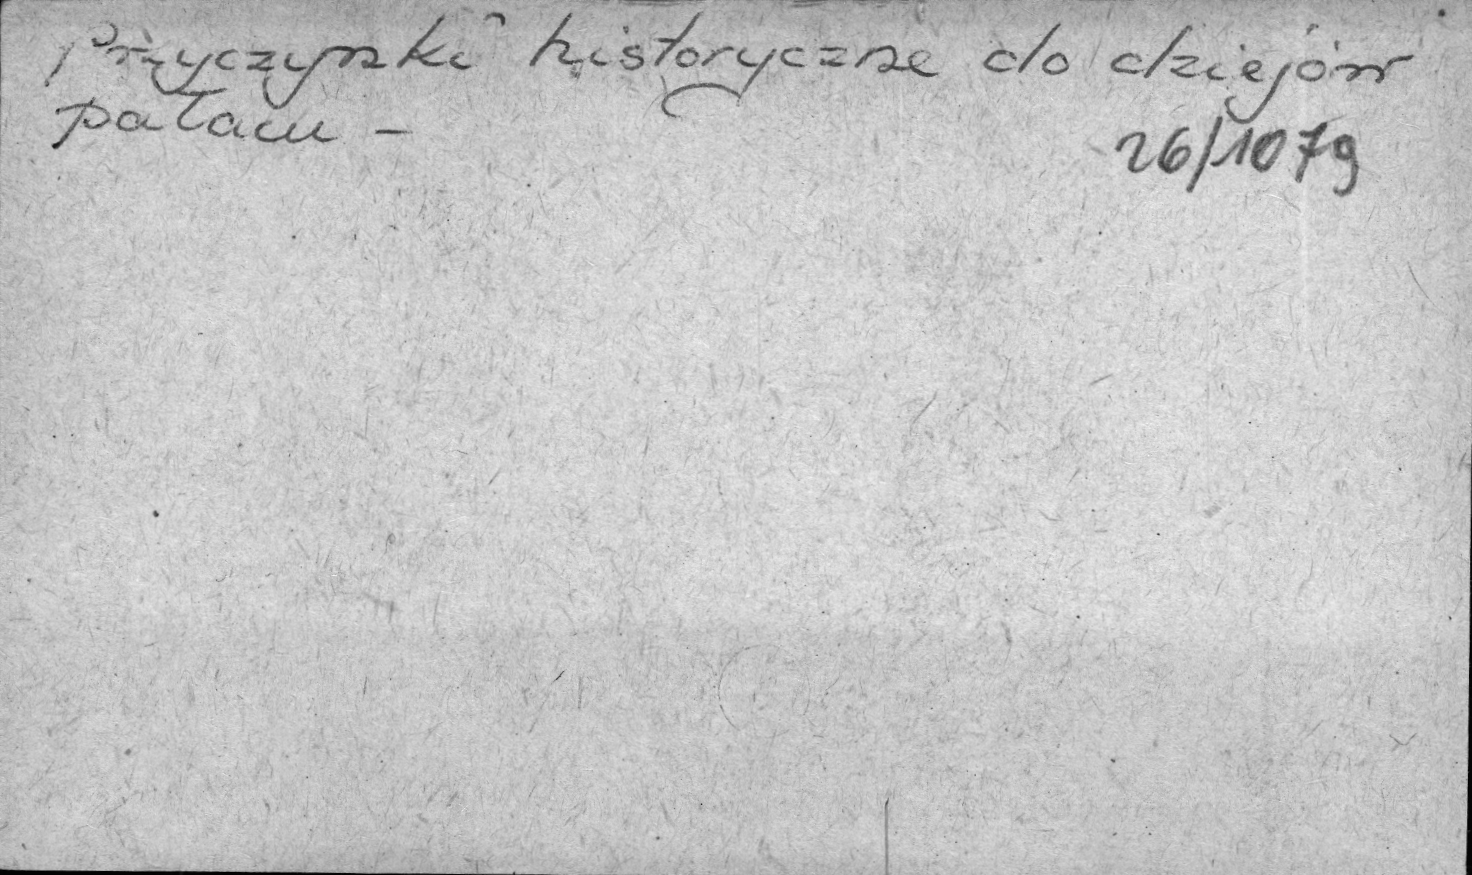 Przyczynki historyczne do dziejów
pałacu –
26/1079